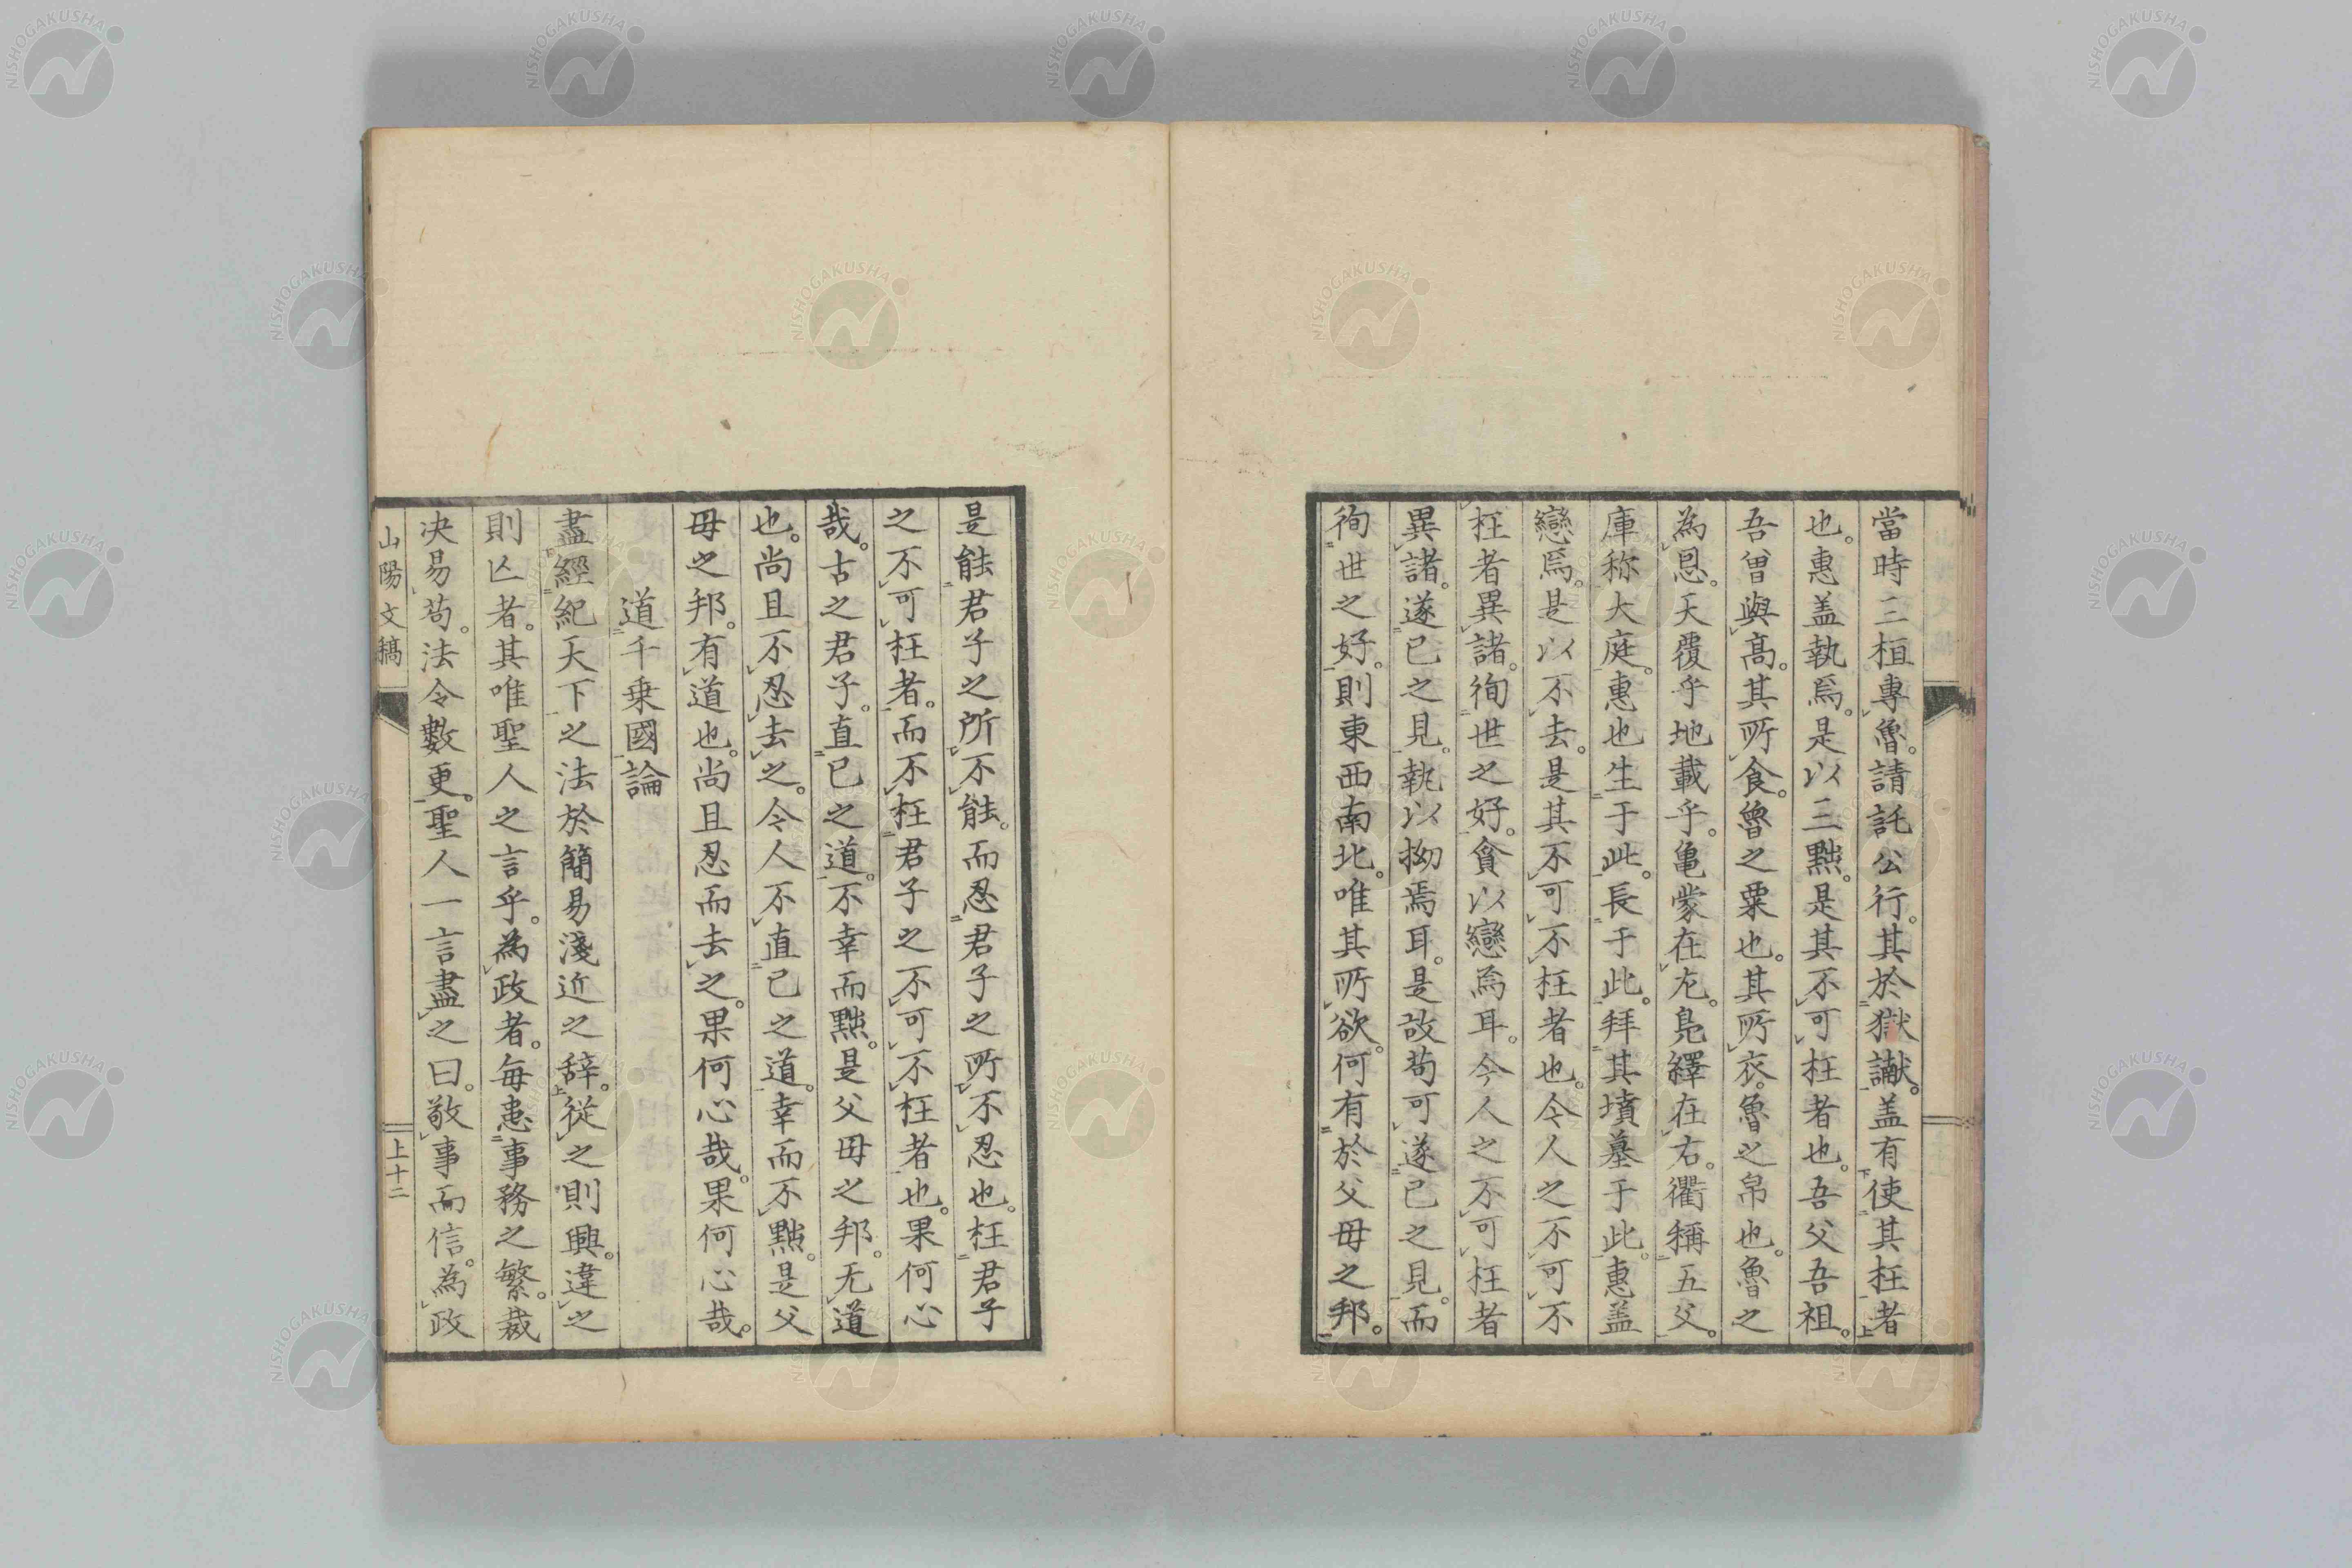 當時三桓專魯。請託公行。其於獄讞。盖有使其枉者
也。惠盖執焉。是以三黜。是其不可枉者也。吾父吾祖。
吾曾與髙。其所食。魯之粟也。其所衣。魯之帛也。魯之
為恩。天覆乎地載乎。亀蒙在左。鳧繹在右。衢稱五父。
庫称大庭。惠也生于此。長于此。拜其墳墓于此。惠盖
戀焉。是以不去。是其不可不枉者也。今人之不可不
枉者異諸。徇世之好。貪以戀焉耳。今人之不可枉者
異諸。遂已之見。執以拗焉耳。是故苟可遂已之見。而
徇世之好。則東西南北。唯其所欲。何有於父母之邦。
是能君子之所不能。而忍君子之所不忍也。枉君子
之不可枉者。而不枉君子之不可不枉者也。果何心
哉。古之君子。直已之道。不幸而黜。是父母之邦。无道
也。尚且不忍去之。今人不直已之道。幸而不黜。是父
母之邦。有道也。尚且忍而去之。果何心哉。果何心哉。
道千乗國論
盡經紀天下之法於簡易淺近之辞。從之則興。違之
則亾者。其唯聖人之言乎。為政者。毎患事務之繁。裁
决易苟。法令數更。聖人一言盡之曰。敬事而信。為政
山陽文稿
上十二
NISHOGAKUSHA